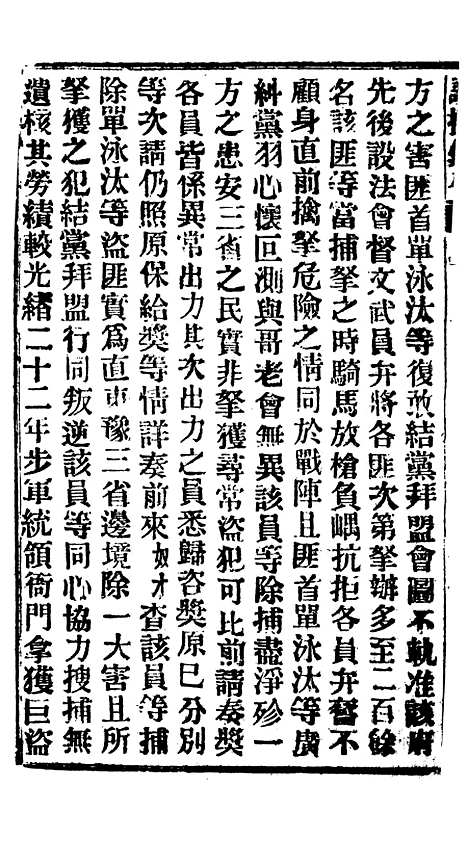 方之害匪首單泳汰等復敢結黨拜盟會圖不軌准該府
先後設法會督文武員弁將各匪次第拏辦多至二百餘
名該匪等當捕拏之時騎馬放槍負嵎抗拒各員弁督不
顧身直前擒拏危險之情同於戰陣且匪首單泳汰等廣
糾黨羽心懷叵測與哥老會無異該員等除捕盡淨殄一
方之患安三省之民實非拏獲尋常盜犯可比前請奏獎
各員皆係異常出力其次出力之員悉歸咨獎原已分別
等次請仍照原保給獎等情詳奏前來奴才查該員等捕
除單泳汰等盜匪實爲直東豫三省邊境除一大害且所
拏獲之犯結黨拜盟行同叛逆該員等同心協力搜捕無
遺核其勞績較光緒二十二年步軍統領衙門拿獲巨盜